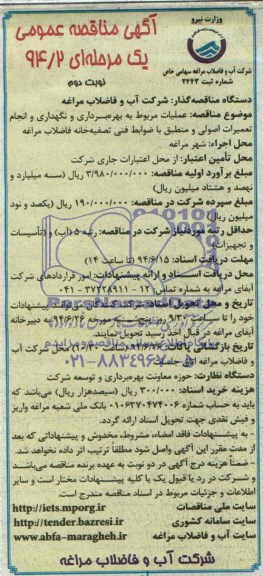 وزارت نیرو
شرکت آب و فاضلاب مراغه سهامی خاص
شماره ثبت ۳۴۴۳
آگهی مناقصه عمومی
یک مرحله‌ای ۹۴/۲
نوبت دوم
دستگاه مناقصه‌گذار: شرکت آب و فاضلاب مراغه
موضوع مناقصه: عملیات مربوط به بهره‌برداری و نگهداری و انجام
تعمیرات اصولی و منطبق با ضوابط فنی تصفیه‌خانه فاضلاب مراغه
محل اجراء: شهر مراغه
محل تأمین اعتبار: از محل اعتبارات جاری شرکت
مبلغ برآورد اولیه مناقصه: ۳/۹۸۰/۰۰۰/۰۰۰ ریال (سه میلیارد و
نهصد و هشتاد میلیون ریال)
مبلغ سپرده شرکت در مناقصه: ۱۹۰/۰۰۰/۰۰۰ ریال (یکصد و نود
میلیون ریال)
حداقل رتبه موردنیاز شرکت در مناقصه: رتبه ۵ (آب) و (تأسیسات
و تجهیزات)
مهلت دریافت اسناد: ۹۴/۶/۱۵ (تا ساعت ۱۴)
محل دریافت اسناد و ارائه پیشنهادات: امور قراردادهای شرکت
آبفای مراغه به شماره تماس: ۱۲-۳۷۲۲۸۹۱۱-۰۴۱
تاریخ و محل تحویل اسناد: پیشنهادات
خود را تا ساعت ۹/۳۰ روز مورخه ۹۴/۶/۲۶ به دبیرخانه
آبفای مراغه در قبال اخذ رسید تحویل نمایند.
تاریخ بازگشائی پاکات: شرکت آب
و فاضلاب مراغه
۰۲۱-۸۸۳۴۹۶۷۰
دستگاه نظارت: حوزه معاونت بهره‌برداری و توسعه شرکت
هزینه خرید اسناد: ۳۰۰/۰۰۰ ریال (سیصدهزار ریال) می‌باشد که
باید به حساب شماره ۰۱۰۶۳۷۰۴۷۴۰۰۶ بانک ملی شعبه مراغه واریز
و فیش نقدی جهت تحویل اسناد ارائه گردد.
- به پیشنهادات فاقد امضاء، مشروط، مخدوش و پیشنهاداتی که بعد
از مدت مقرر این آگهی واصل شود مطلقاً ترتیب اثر داده نخواهد شد.
- ضمناً هزینه درج آگهی در دو نوبت به عهده برنده مناقصه می‌باشد
و شرکت در رد یا قبول یک یا کلیه پیشنهادات مختار است و سایر
اطلاعات و جزئیات مربوط در اسناد مناقصه مندرج است.
سایت ملی مناقصات http://iets.mporg.ir
سایت سامانه کشوری http://tender.bazresi.ir
سایت آب و فاضلاب مراغه www.abfa-maragheh.ir
شرکت آب و فاضلاب مراغه